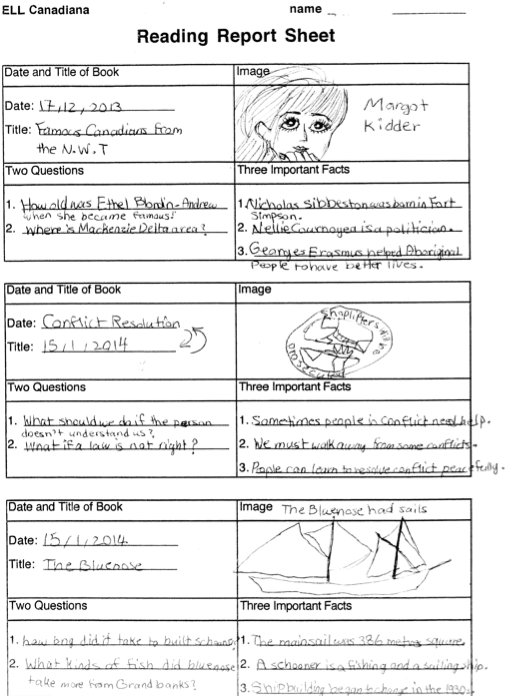 ELL Canadiana name
Reading Report Sheet
Date and Title of Book Image
Date: 17,12,2013
Title: Famous Canadians from
the N.W.T
Margot
Kidder
Two Questions Three Important Facts
1. How old was Ethel Blondin-Andrew
when she became famous?
2. Where is Mackenzie Delta area?
1. Nicholas Sibbeston was born in Fort
Simpson.
2. Nellie Cournoyea is a politician.
3. Georges Erasmus helped Aboriginal
People to have better lives.
Date and Title of Book Image
Date: Conflict Resolution
Title: 15/1/2014
Shoplifters will be
prosecuted
Two Questions Three Important Facts
1. What should we do if the person
doesn't understand us?
2. What if a law is not right?
1. Sometimes people in conflict need help.
2. We must walk away from some conflicts.
3. People can learn to resolve conflict peacefully.
Date and Title of Book Image The Bluenose had sails
Date: 15/1,2014.
Title: The Bluenose
Two Questions Three Important Facts
1. how long did it take to built
2. What kinds of fish did bluenose
take more from Grand banks?
1. The mainsail was 386 square
2. A schooner is a fishing and a sailing ship.
3. Shipbuilding began to change in the 1930s.